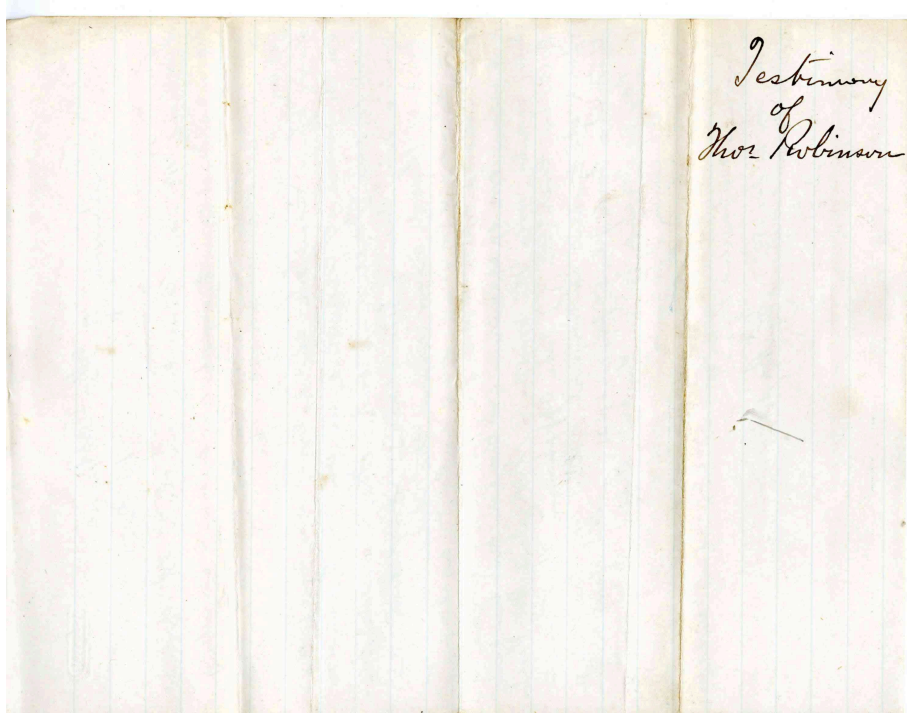 Testimony
of
Thos. Robinson